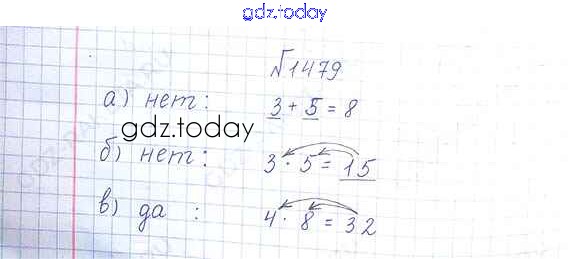 gdz.today
№1479
а) нет: 3 + 5 = 8
gdz.today
б) нет: 3 · 5 = 15
в) да : 4 · 8 = 32